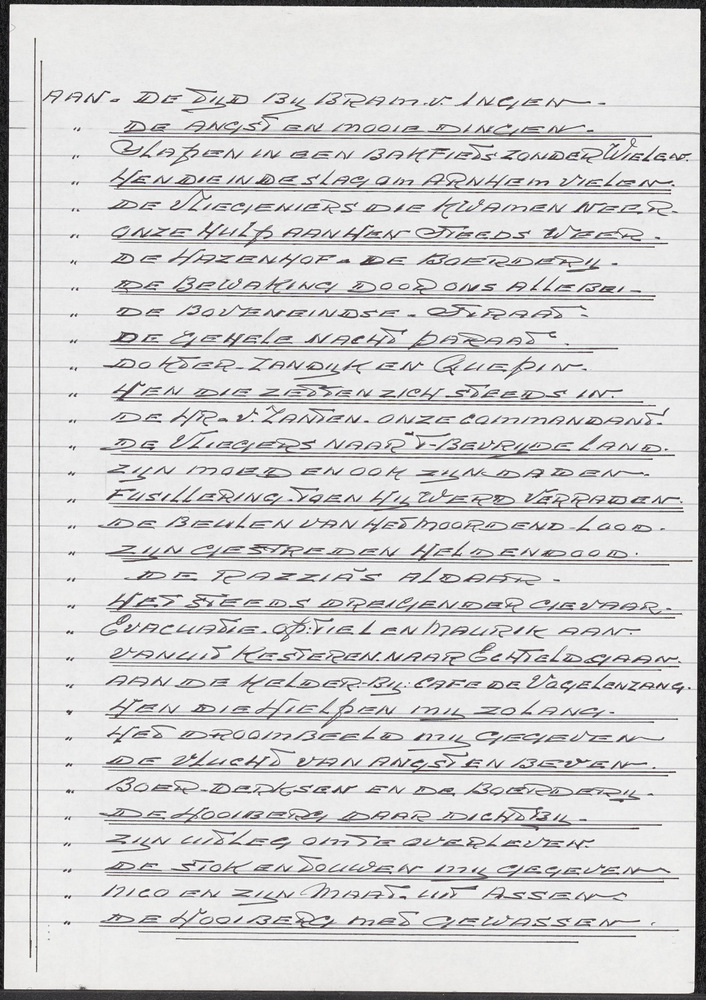 AAN - DE TIJD BIJ BRAM. V. INGEN -
" DE ANGST EN MOOIE DINGEN -
" SLAPEN IN EEN BAKFIETS ZONDER WIELEN.
" HEN DIE IN DE SLAG OM ARNHEM VIELEN -
" DE VLIEGENIERS DIE KWAMEN NEER -
" ONZE HULP AAN HEN STEEDS WEER -
" DE HAZENHOF - DE BOERDERIJ -
" DE BEWAKING DOOR ONS ALLEBEI -
" DE BOVENEINDSE - STRAAT -
" DE GEHELE NACHT PARAAT -
" DOKTER - ZANDIJK EN QUEPIN -
" HEN DIE ZETTEN ZICH STEEDS IN -
" DE HR - V. ZANTEN - ONZE COMMANDANT -
" DE VLIEGERS NAAR 'T - BEVRIJDE LAND -
" ZIJN MOED EN OOK ZIJN - DADEN -
" FUSILLERING - TOEN HIJ WERD VERRADEN -
" DE BEULEN VAN HET MOORDEND - LOOD -
" ZIJN GESTREDEN HELDENDOOD -
" DE RAZZIA'S ALDAAR -
" HET STEEDS DREIGENDER GEVAAR -
" EVACUATIE - OP - TIEL EN MAURIK AAN -
" VANUIT KESTEREN - NAAR ECHTELD GAAN -
" AAN DE KELDER - BIJ - CAFE DE VOGELENZANG -
" HEN DIE HIELPEN MIJ ZO LANG -
" HET DROOMBEELD MIJ GEGEVEN
" DE VLUCHT VAN ANGST EN BEVEN -
" BOER - DERKSEN EN DE BOERDERIJ -
" DE HOOIBERG DAAR DICHTBIJ -
" ZIJN UITLEG OM TE OVERLEVEN
" DE STOK EN TOUWEN MIJ GEGEVEN
" NICO EN ZIJN MAAT - UIT ASSEN -
" DE HOOIBERG MET GEWASSEN -